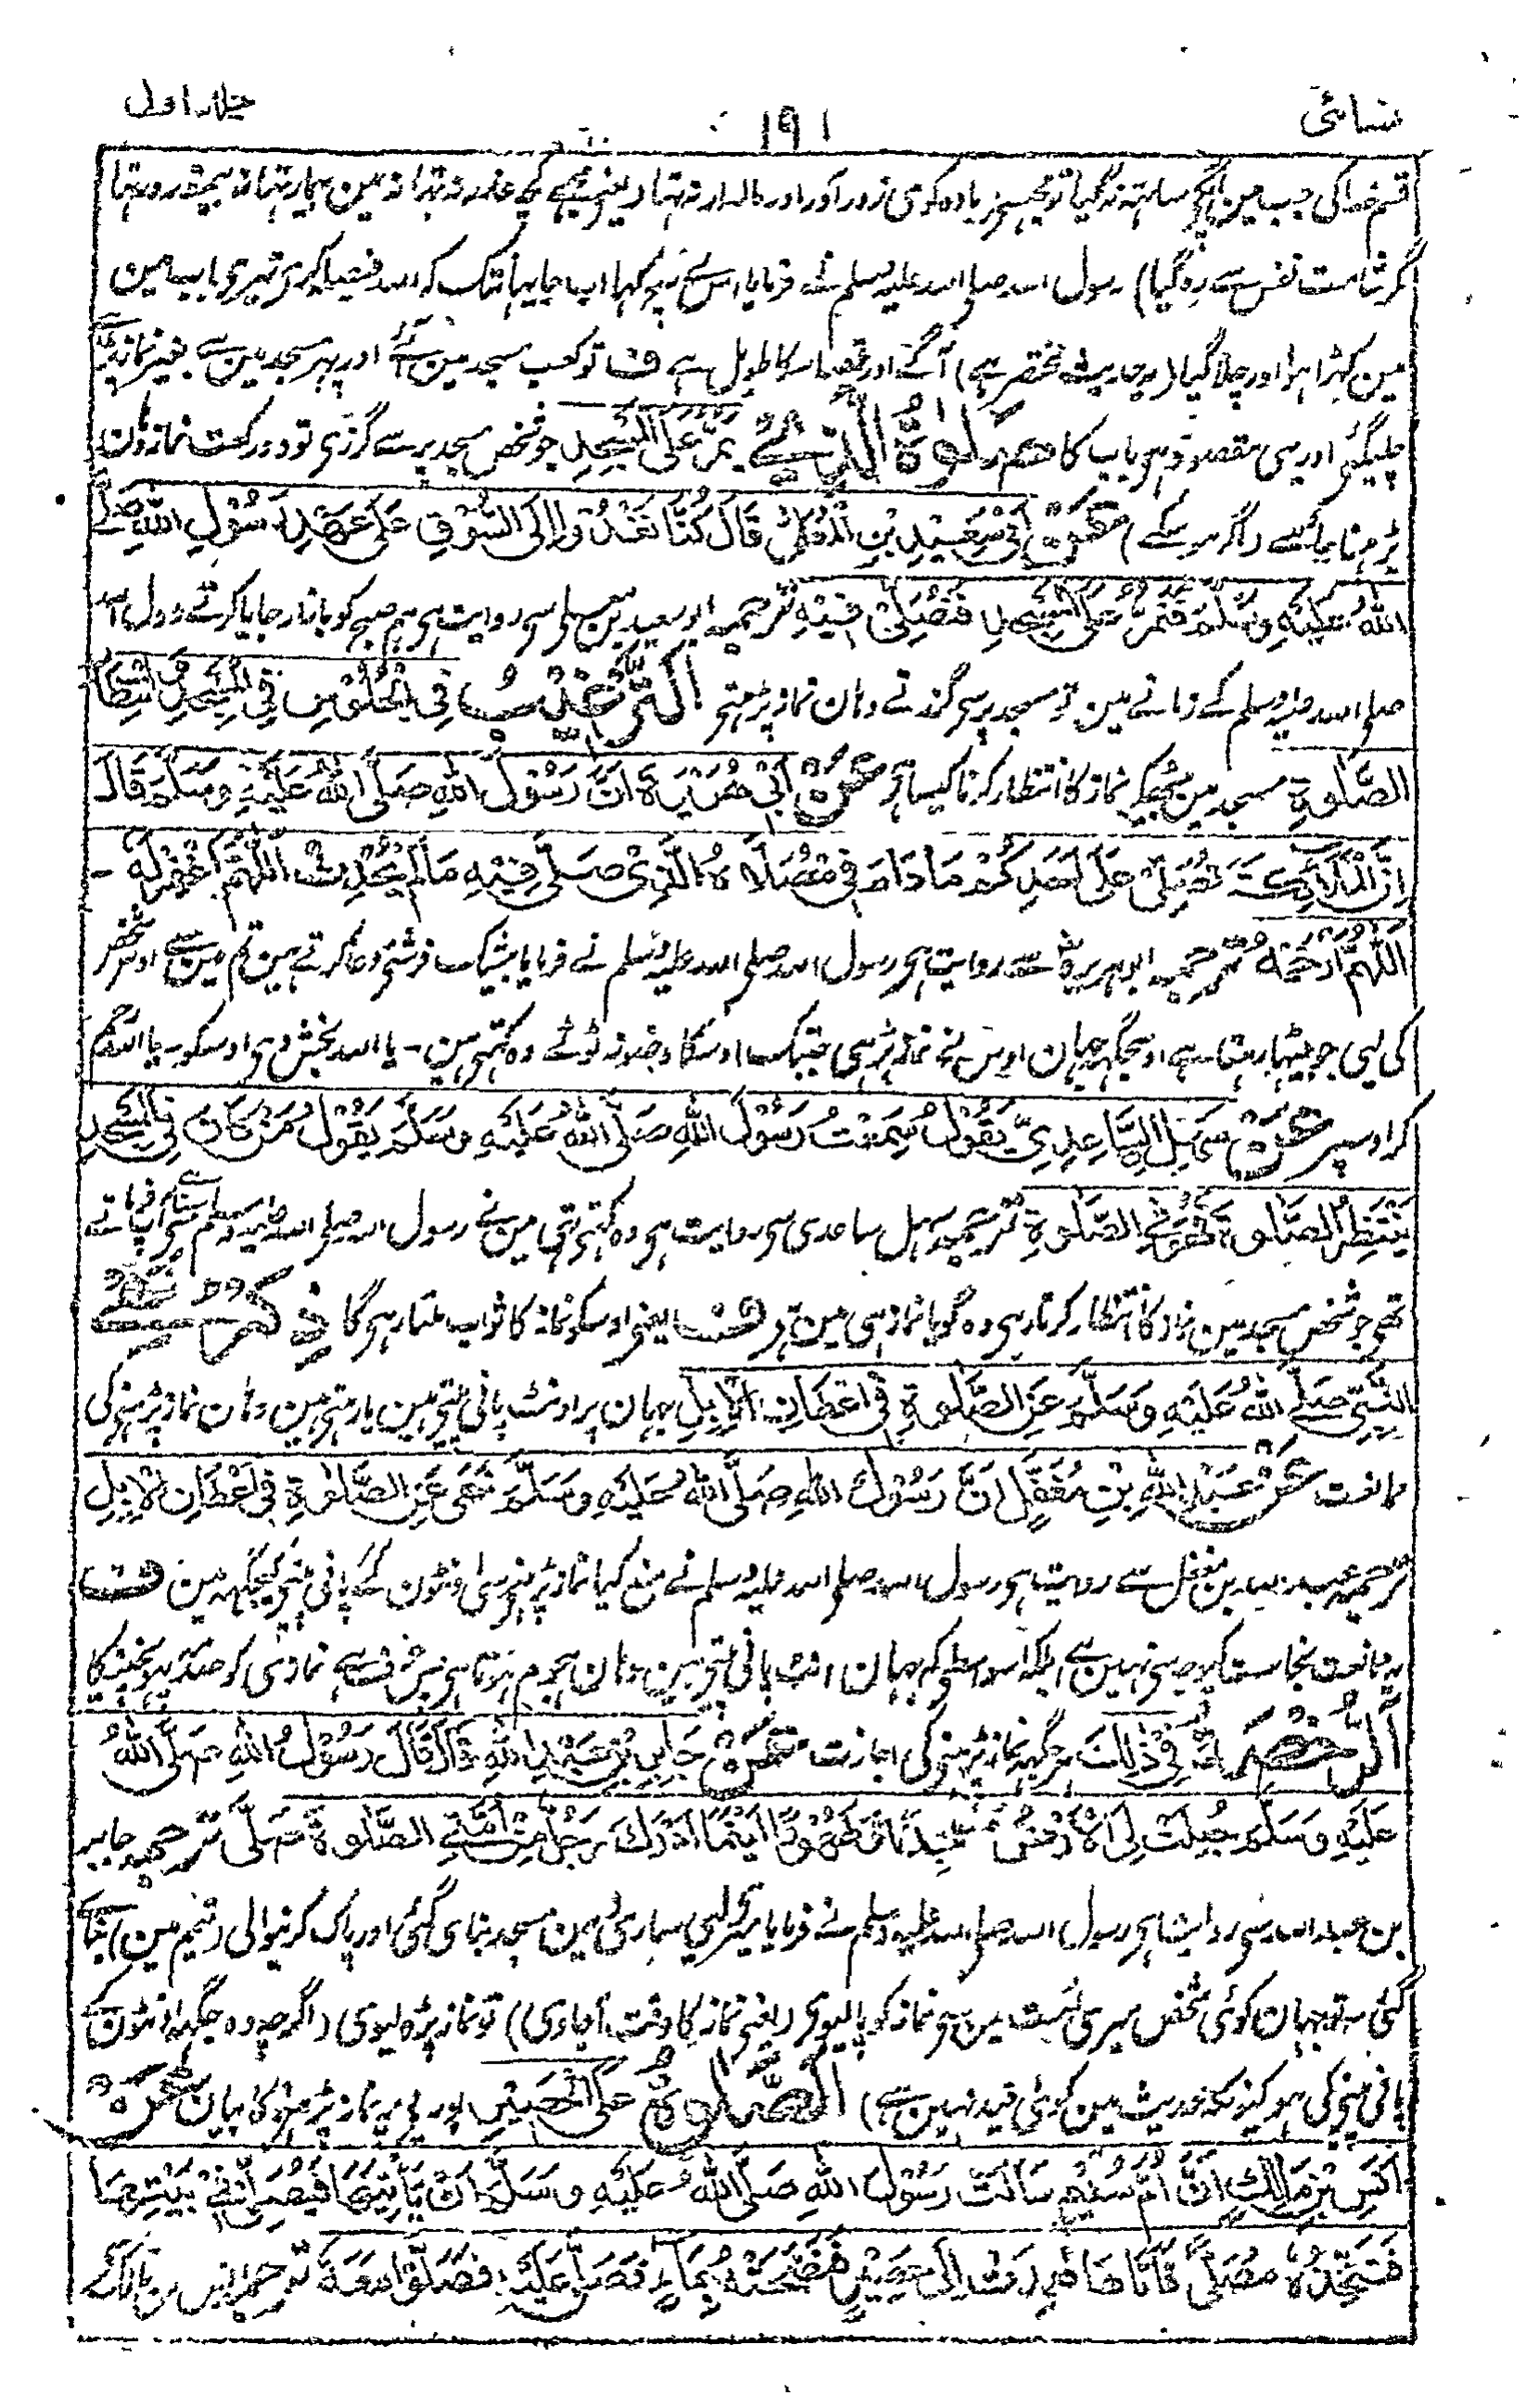 نسائی ۱۹۱ جلد اول
قسم خدا کی جب مین آپکے ساتھ نہ گیا تو مجھسے زیادہ کوئی زور آور اور مالدار نہ تہا (یعنی مجھے کچھ عذر نہ تہا نہ مین بیمار تہا نہ بیمقدور تہا
مگر شامت نفس سے رہ گیا) رسول اللہ صلی اللہ علیہ وسلم نے فرمایا اس نے سچ کہا اب جا یہانتک کہ اللہ فیصلہ کری تیری باب مین
مین کہڑا ہوا اور چلا گیا (یہ حدیث مختصر ہے) آگے اور قصہ اسکا طویل ہے ف تو کعب مسجد مین آئے اور پہر مسجد مین سے بغیر نماز پڑہے
چلیگئے اور یہی مقصود ہے باب کا صَلٰوةُ الَّذِيْ يَمُرُّ عَلَى الْمَسْجِدِ جو شخص مسجد پر سے گزری تو دو رکعت نماز وہان
پڑہنا چاہیے (اگر ہو سکے) عَنْ اَبِيْ سَعِيْدِ بْنِ الْمُعَلّٰى قَالَ كُنَّا نَغْدُوْا اِلَى السُّوْقِ عَلٰى عَهْدِ رَسُوْلِ اللّٰهِ صَلَّى
اللّٰهُ عَلَيْهِ وَسَلَّمَ فَنَمُرُّ عَلَى الْمَسْجِدِ فَنُصَلِّيْ فِيْهِ ترجمہ ابو سعید بن معلی سے روایت ہی ہم صبح کو بازار جایا کرتے رسول اللہ
صلی اللہ علیہ وسلم کے زمانے مین تو مسجد پر سے گزرتے وہان نماز پڑہتے اَلتَّرْغِيْبُ فِي الْجُلُوْسِ فِي الْمَسْجِدِ وَانْتِظَارِ
الصَّلٰوةِ مسجد مین بیٹھکر نماز کا انتظار کرنا کیسا ہے عَنْ اَبِيْ هُرَيْرَةَ اَنَّ رَسُوْلَ اللّٰهِ صَلَّى اللّٰهُ عَلَيْهِ وَسَلَّمَ قَالَ
اِنَّ الْمَلَائِكَةَ تُصَلِّيْ عَلٰى اَحَدِكُمْ مَا دَامَ فِيْ مُصَلَّاهُ الَّذِيْ صَلّٰى فِيْهِ مَا لَمْ يُحْدِثْ اَللّٰهُمَّ اغْفِرْ لَهُ -
اَللّٰهُمَّ ارْحَمْهُ ترجمہ ابو ہریرہ سے روایت ہی رسول اللہ صلی اللہ علیہ وسلم نے فرمایا بیشک فرشتے دعا کرتے ہین تم مین سے اوس شخص
کی لیی جو بیٹہا رہتا ہے اوسجگہ جہان اوس نے نماز پڑہی جبتک اوسکا وضو نہ ٹوٹے وہ کہتے ہین - یا اللہ بخش دی اوسکو - یا اللہ رحم
کر اوسپر عَنْ سَهْلِ السَّاعِدِيِّ يَقُوْلُ سَمِعْتُ رَسُوْلَ اللّٰهِ صَلَّى اللّٰهُ عَلَيْهِ وَسَلَّمَ يَقُوْلُ مَنْ كَانَ فِي الْمَسْجِدِ
يَنْتَظِرُ الصَّلٰوةَ فَهُوَ فِي الصَّلٰوةِ ترجمہ سہل ساعدی سی روایت ہی وہ کہتی تہی مین نے رسول اللہ صلی اللہ علیہ وسلم سے سنا آپ فرماتے
تھے جو شخص مسجد مین نماز کا انتظار کرتا رہی وہ گویا نماز ہی مین ہے ف یعنی اوسکو نماز کا ثواب ملتا رہی گا ذِكْرُ نَهْيِ
النَّبِيِّ صَلَّى اللّٰهُ عَلَيْهِ وَسَلَّمَ عَنِ الصَّلٰوةِ فِيْ اَعْطَانِ الْاِبِلِ جہان پر اونٹ پانی پیتے ہین یا رہتے ہین وہان نماز پڑہنے کی
ممانعت عَنْ عَبْدِ اللّٰهِ بْنِ مُغَفَّلٍ اَنَّ رَسُوْلَ اللّٰهِ صَلَّى اللّٰهُ عَلَيْهِ وَسَلَّمَ نَهٰى عَنِ الصَّلٰوةِ فِيْ اَعْطَانِ الْاِبِلِ
ترجمہ عبد اللہ بن مغفل سے روایت ہی رسول اللہ صلی اللہ علیہ وسلم نے منع کیا نماز پڑہنے سی اونٹون کے پانی پینے کیجگہہ مین ف
یہ ممانعت نجاست کیوجہ سی نہین ہے بلکہ اسواسطے کہ جہان اونٹ پانی پیتے ہین وہان ہجوم ہوتا ہی خوف ہے نمازی کو صدمہ پہونچنے کا
اَلرُّخْصَةُ فِيْ ذٰلِكَ ہر جگہہ نماز پڑہنے کی اجازت عَنْ جَابِرِ بْنِ عَبْدِ اللّٰهِ قَالَ قَالَ رَسُوْلُ اللّٰهِ صَلَّى اللّٰهُ
عَلَيْهِ وَسَلَّمَ جُعِلَتْ لِيَ الْاَرْضُ مَسْجِدًا وَطَهُوْرًا اَيْنَمَا اَدْرَكَ رَجُلٌ مِنْ اُمَّتِي الصَّلٰوةَ صَلّٰى ترجمہ جابر
بن عبد اللہ سی روایت ہی رسول اللہ صلی اللہ علیہ وسلم نے فرمایا میری لیی ساری زمین مسجد بنائی گئی اور پاک کرنیوالی (تیمم مین) بنائی
گئی تو جہان کوئی شخص میری امت مین سے نماز کو پالیوی (یعنی نماز کا وقت آجاوی) تو نماز پڑہ لیوی (اگرچہ وہ جگہہ اونٹون کے
پانی پینے کی ہو کیونکہ حدیث مین کوئی قید نہین ہے) اَلصَّلٰوةُ عَلَى الْحَصِيْرِ بوریے پر نماز پڑہنے کا بیان عَنْ
اَنَسِ بْنِ مَالِكٍ اَنَّ اُمَّ سُلَيْمٍ سَاَلَتْ رَسُوْلَ اللّٰهِ صَلَّى اللّٰهُ عَلَيْهِ وَسَلَّمَ اَنْ يَّاْتِيَهَا فَيُصَلِّيَ فِيْ بَيْتِهَا
فَتَتَّخِذَهُ مُصَلًّى فَاَتَاهَا فَعَمِدَتْ اِلٰى حَصِيْرٍ فَنَضَحَتْهُ بِمَاءٍ فَصَلّٰى عَلَيْهِ فَصَلَّوْا مَعَهُ ترجمہ انس بن مالک سے